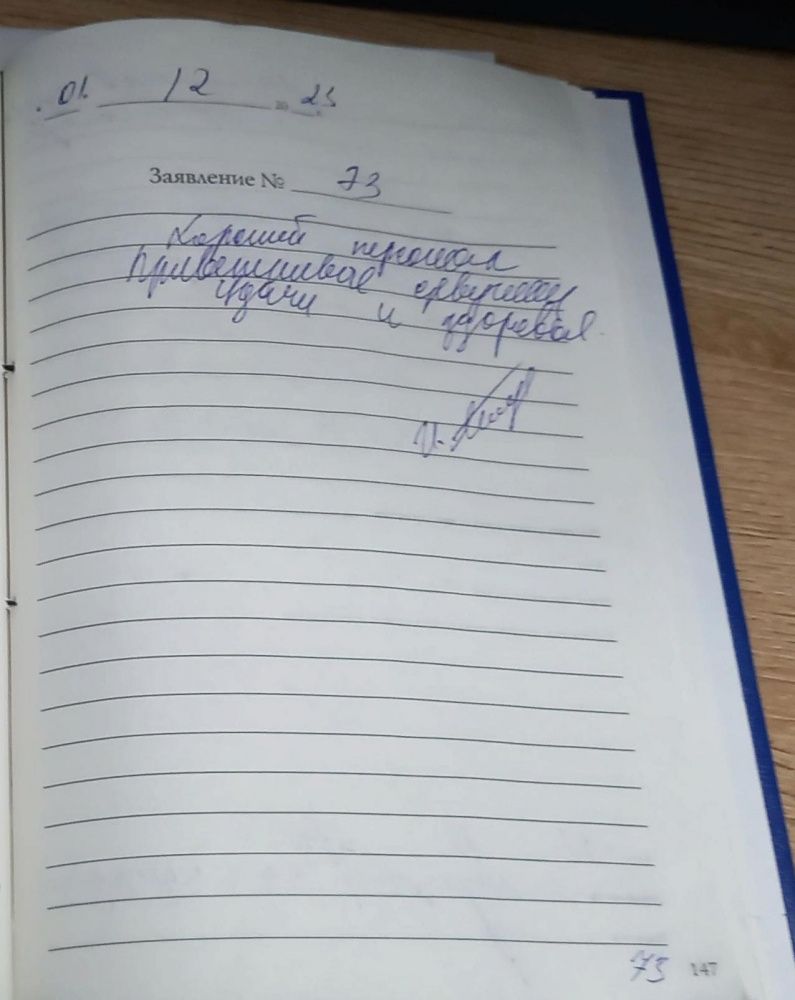 01. 12 20 23
Заявление № 73
Хороший персонал
Приветливые
удачи и здоровья
73 147